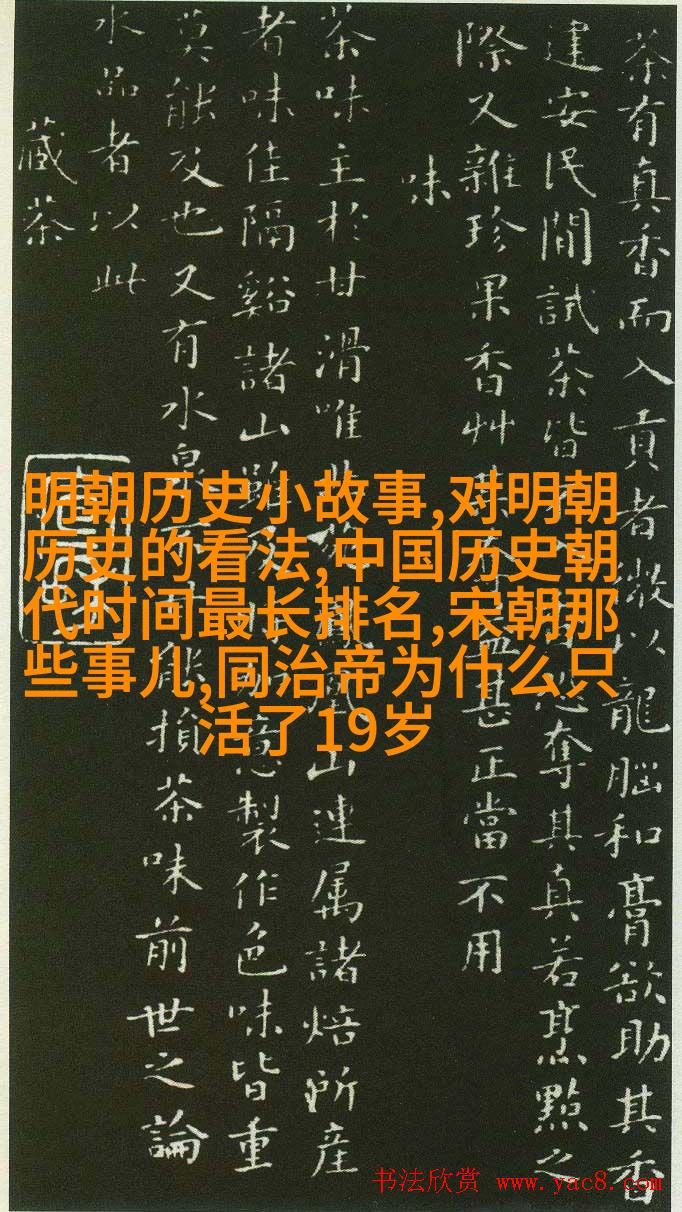 茶有真香而入貢者微以龍腦和膏欲助其香
建安民間試茶皆奪其真若烹點之
際又雜珍果香艸其奪益甚正當不用
味
茶味主於甘滑唯山連属諸焙所產
者味佳隔谿諸山雖意製作色味皆重
莫能及也又有水泉能損茶味前世之論
水品者以此
藏茶
明朝历史小故事,对明朝
历史的看法,中国历史朝
代时间最长排名,宋朝那
些事儿,同治帝为什么只
活了19岁
书法欣赏 www.yac8.com